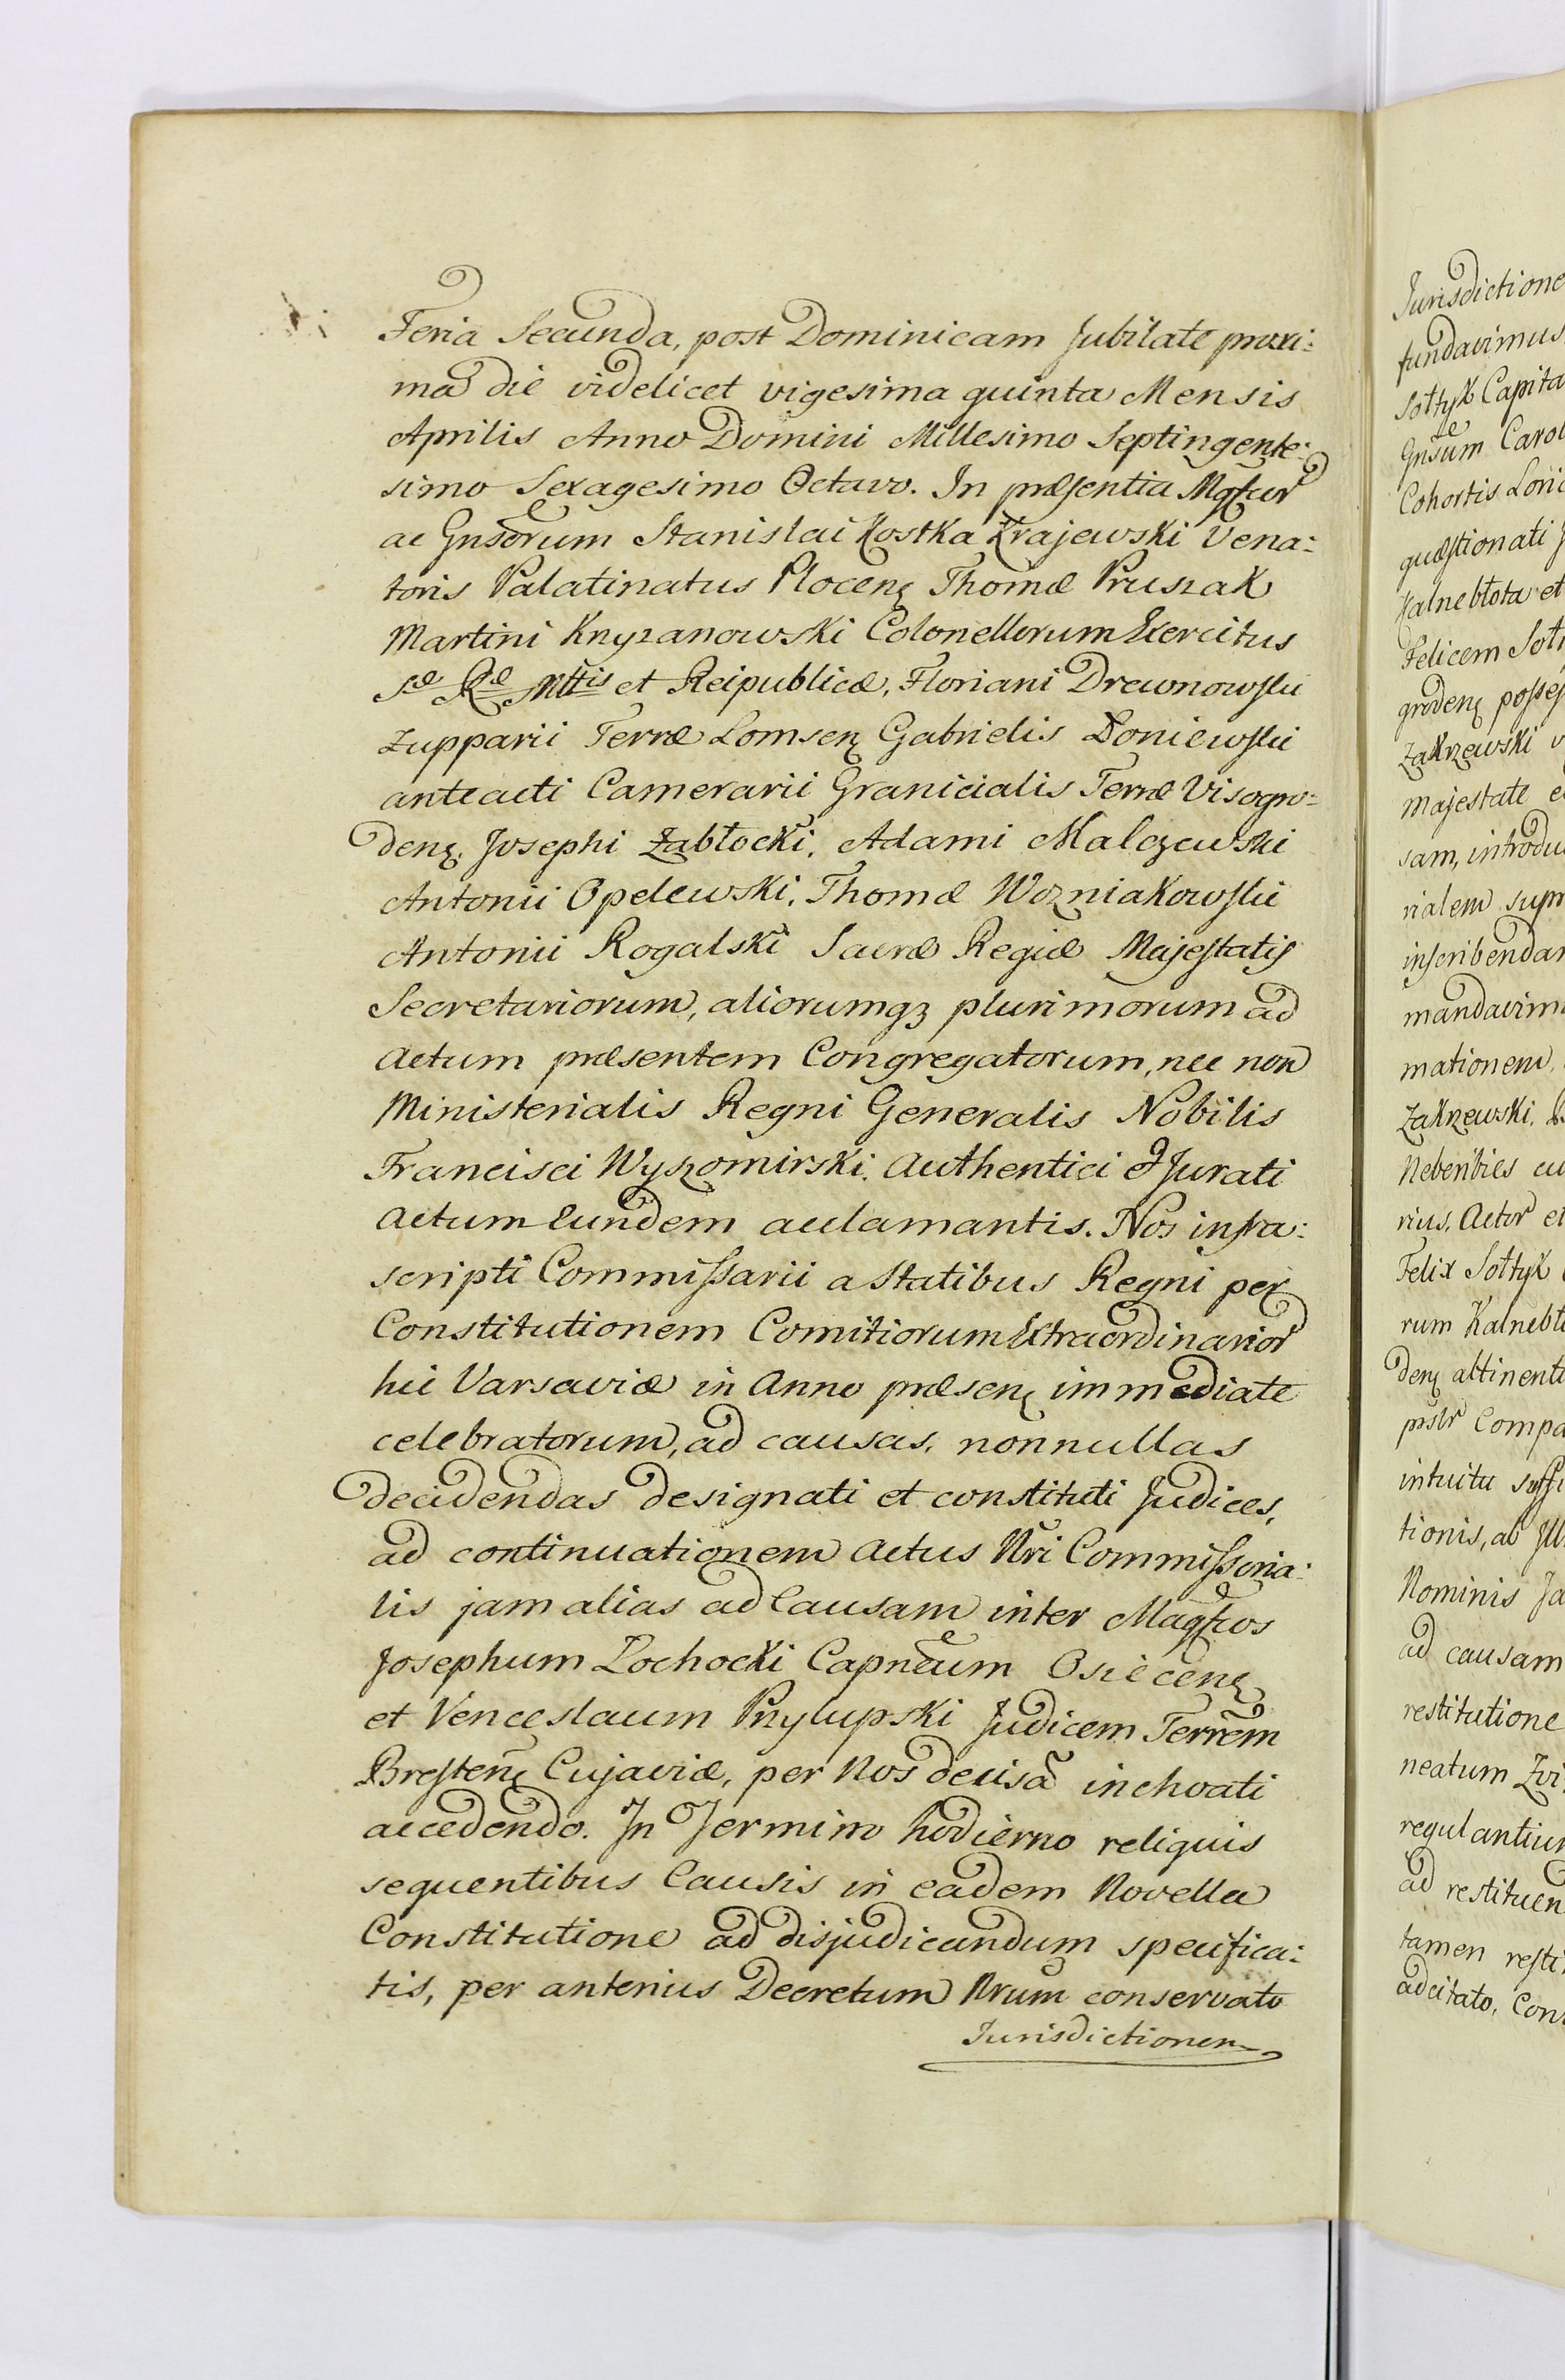 Feria Secunda, post Dominicam Jubilate proxi:
ma die videlicet vigesima quinta Mensis
Aprilis Anno Domini Millesimo Septingente:
simo Sexagesimo Octavo. In præsentia Mgfcor
ac Gnsorum Stanislai Kostka Krajewski Vena:
toris Palatinatus Plocen Thomæ Pruszak
Martini Knyzanowski Colonellorum Exercitus
Sæ Ræ Mttis et Reipublicæ, Floriani Drewnowski
Zupparii Terræ Lomsen Gabrielis Doniewski
anteacti Camerarii Granicialis Terræ Visogro:
den, Josephi Zabłocki, Adami Malczewski
Antonii Opelewski, Thomæ Wozniakowski
Antonii Rogalski Sacræ Regiæ Majestatis
Secretariorum, aliorumqz plurimorum ad
Actum præsentem Congregatorum, nec non
Ministerialis Regni Generalis Nobilis
Francisci Wyszomirski Authentici & Jurati
Actum Eundem acclamantis. Nos infra:
scripti Commissarii a Statibus Regni per
Constitutionem Comitiorum Extraordinarior
hic Varsaviæ in Anno præsen immediate
celebratorum, ad causas, nonnullas
decidendas designati et constituti Judices,
ad continuationem Actus Nri Commissoria:
lis jam alias ad Causam inter Magfcos
Josephum Łochocki Capneum Osiecen
et Venceslaum Przyłupski Judicem Terrem
Bresten Cujaviæ, per Nos decisa inchoati
accedendo. In Termino hodierno reliquis
sequentibus Causis in eadem Novella
Constitutione ad disjudicandum specifica:
tis, per anterius Decretum Nrum conservato
Jurisdictionem
Jurisdictione
fundavimus
Sołtyk Capita
Gnsum Carol
Cohortis Loric
quæstionati
Kalnebłota et
Felicem Sołt
groden posses
Zakrzewski v
Majestate e
sam, introdu
rialem supr
inscribendam
mandavim
mationem
Zakrzewski.
Neberibies cu
rius, Actor et
Felix Sołtyk
rum Kalnebł
den attinenti
pnslr Compa
intuitu suffi
tionis, ab Ill
Nominis Ja
ad causam
restitutione
neatum Zvi
regulantium
ad restituen
tamen resti
adcitato, Con